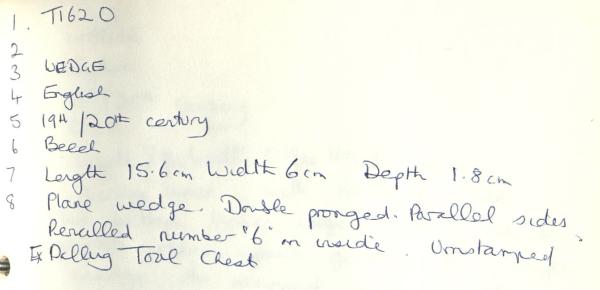 1. T1620
2
3 WEDGE
4 English
5 19th/20th century
6 Beech
7 Length 15.6cm Width 6cm Depth 1.8cm
8 Plane wedge. Double pronged. Parallel sides.
Pencilled number "6" on inside. Unstamped
Ex Delling Tool Chest